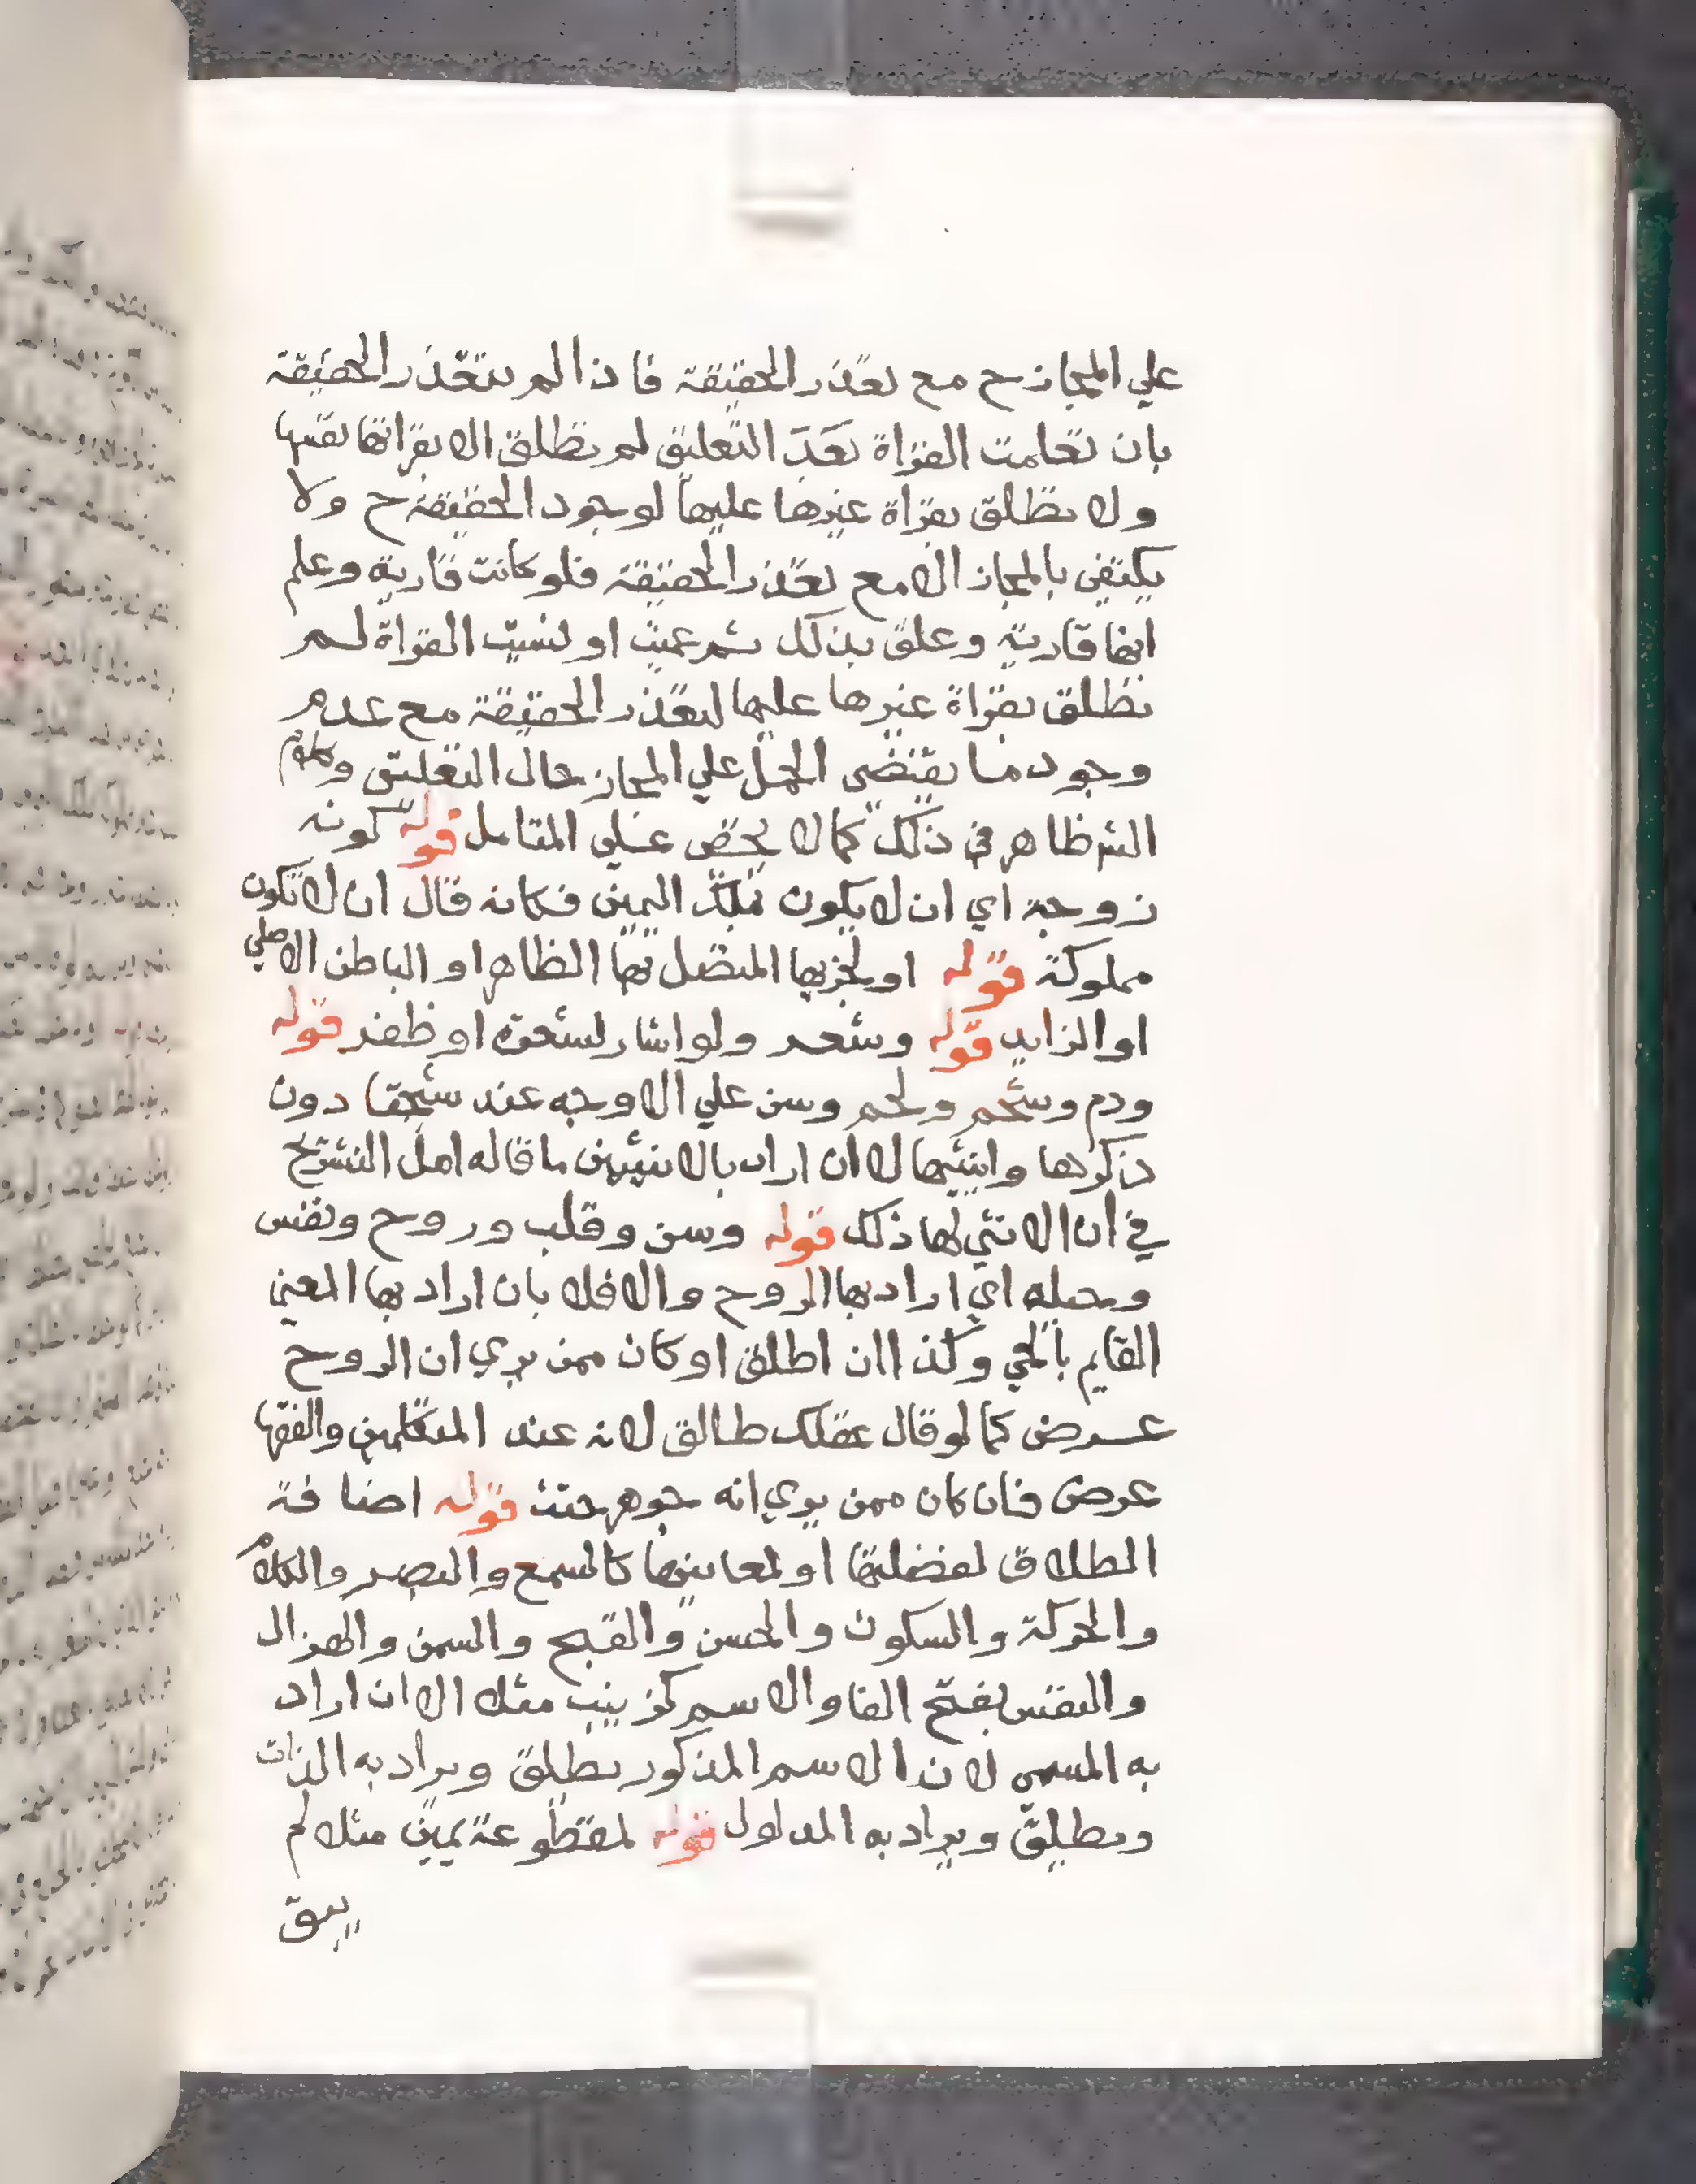 علي المجاز ح مع تعذر الحقيقة فاذا لم تتعذر الحقيقة
بان تعلمت القراة بعد التعليق لم تطلق الا بقراتها بنفسها
ولا تطلق بقراة غيرها عليها لوجود الحقيقة ح ولا
يكتفي بالمجاز الا مع تعذر الحقيقة فلو كانت قارية وعلم
انها قارية وعلق بذلك ثم عميت او نسيت القراة لم
تطلق بقراة غيرها عليها لتعذر الحقيقة مع عدم
وجود ما يقتضي الحمل علي المجاز حال التعليق وكلام
الشر ظاهر في ذلك كما لا يخفي علي المتامل قوله كونه
زوجة اي ان لا يكون تملك اليمين فكانه قال ان لا تكون
مملوكة قوله او لجزيها المتصل بها الظاهر او الباطن الاصلي
او الزايد قوله وشعر ولو اشار لشعرة او ظفر قوله
ودم وشحم ولحم وسن علي الاوجه عند شيخنا دون
ذكرها وانثيها لا ان اراد بالانثيين ما قاله اهل التشريح
في ان الانثي لها ذلك قوله وسن وقلب وروح ونفس
ومحله اي اراد بها الروح والا فلا بان اراد بها المعني
القايم بالحي وكذا ان اطلق او كان ممن يري ان الروح
عرض كما لو قال عقلك طالق لانه عند المتكلمين والفقها
عرض فان كان ممن يري انه جوهر حنث قوله اضافة
الطلاق لفضلتها او لمعانيها كالسمع والبصر والكلام
والحركة والسكون والحسن والقبح والسمن والهزال
والنفس بفتح الفا والاسم كزينب مثلا الا ان اراد
به المسمي لان الاسم المذكور يطلق ويراد به الذات
ويطلق ويراد به المدلول قوله لمقطوعة يمين مثلا لم
يبق